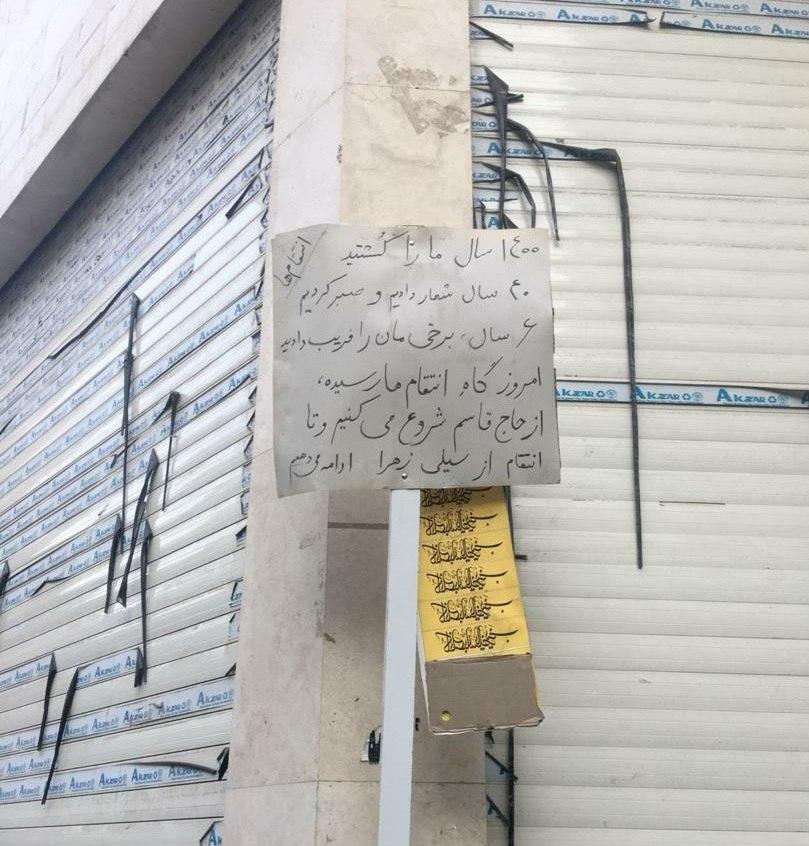 انتقام‌ها
۱۴۰۰ سال ما را کُشتید
۴۰ سال شعار دادیم و صبر کردیم
۶ سال، برخی مان را فریب دادید
امروز گاهِ انتقام ما رسیده،
از حاج قاسم شروع می کنیم و تا
انتقام از سیلی زهرا ادامه می دهیم
AKZAR